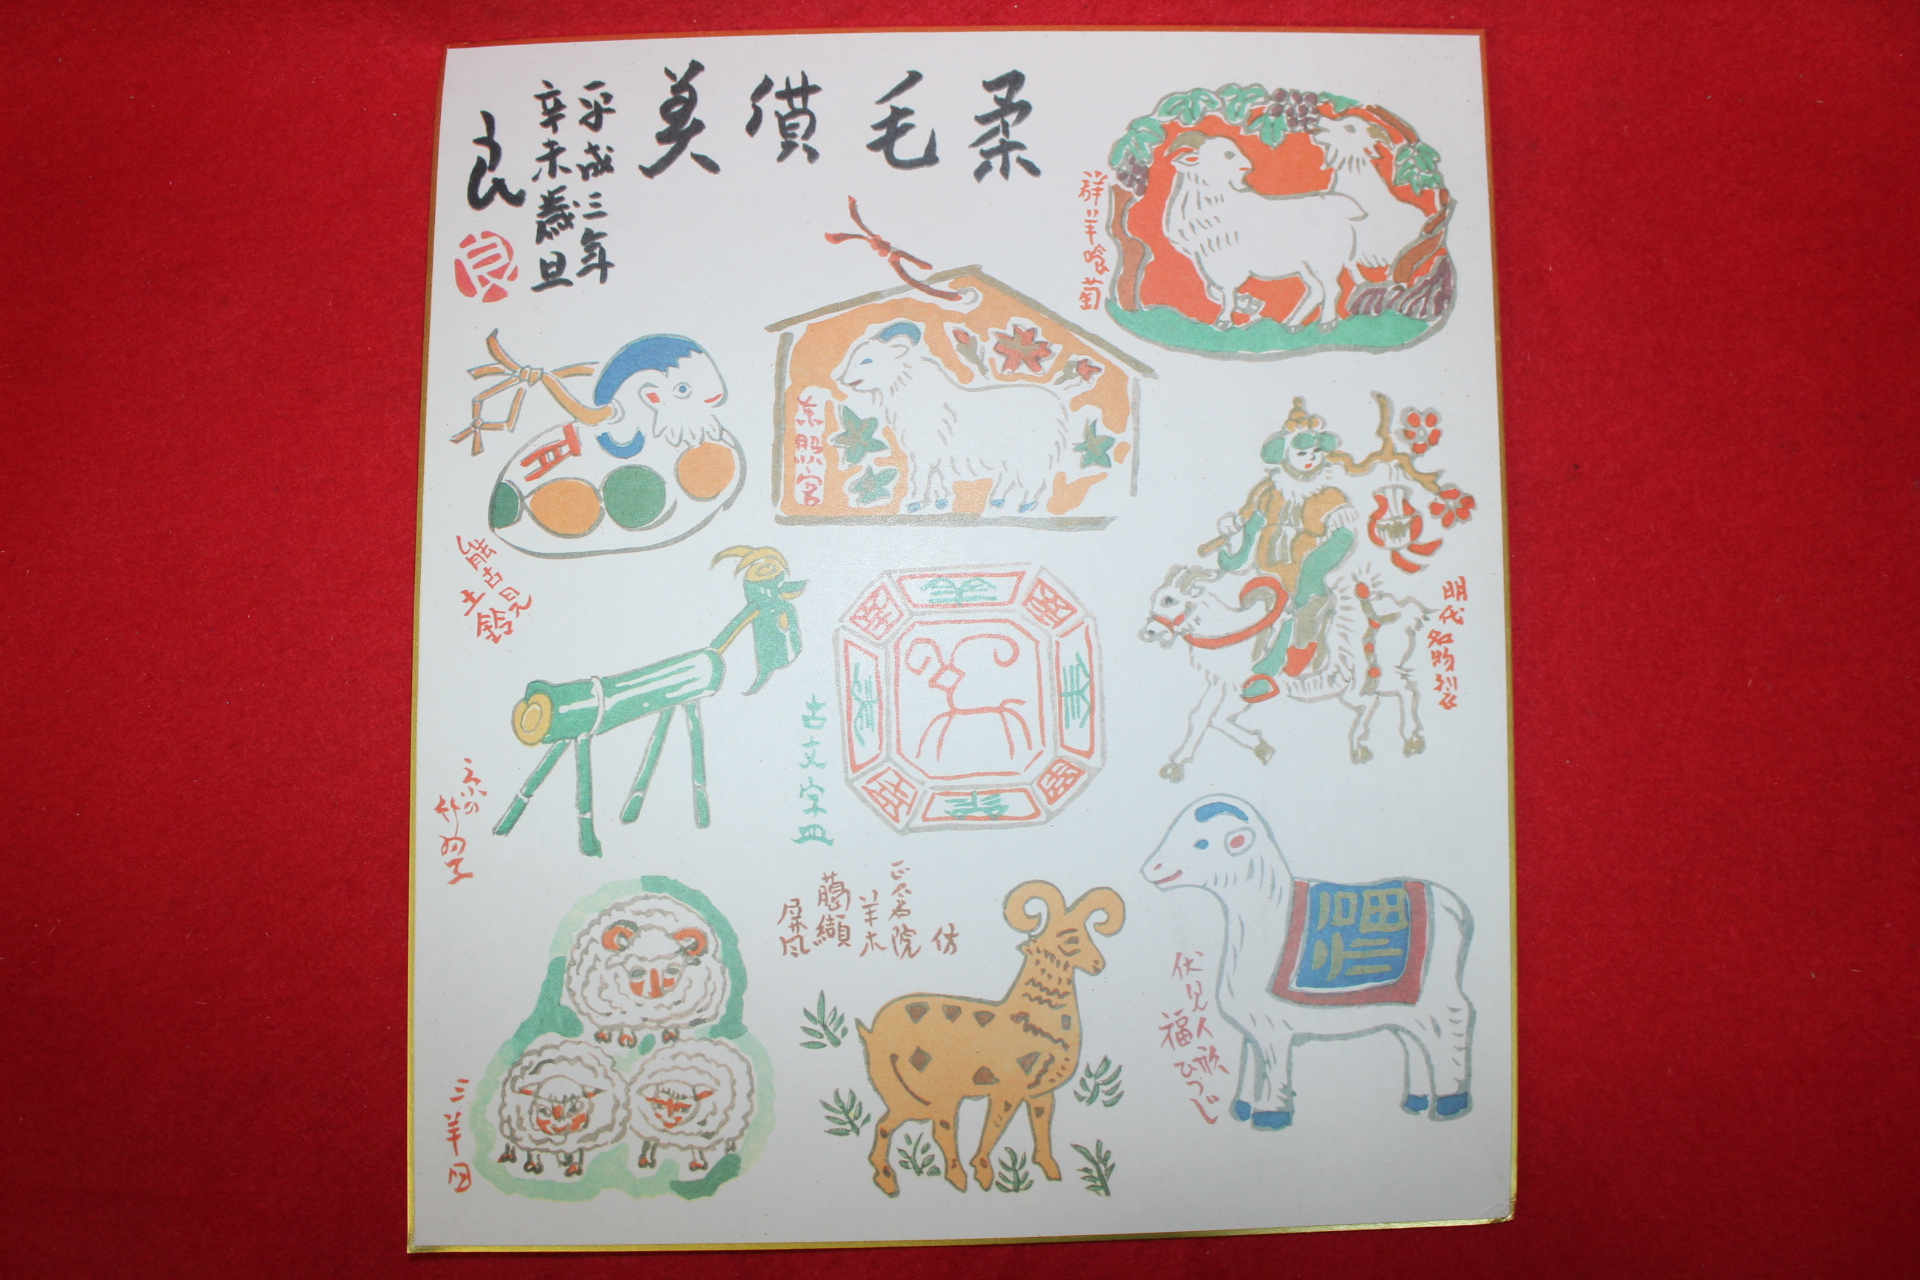 柔毛價美
平成三年
辛未歳旦
良
良
群羊喰萄
東照宮
能古見
土鈴
明代
名物裂
京の
古文字皿
正倉院 仿
羊木
臈纈
屏風
伏見人形
福ひつじ
福
三羊図